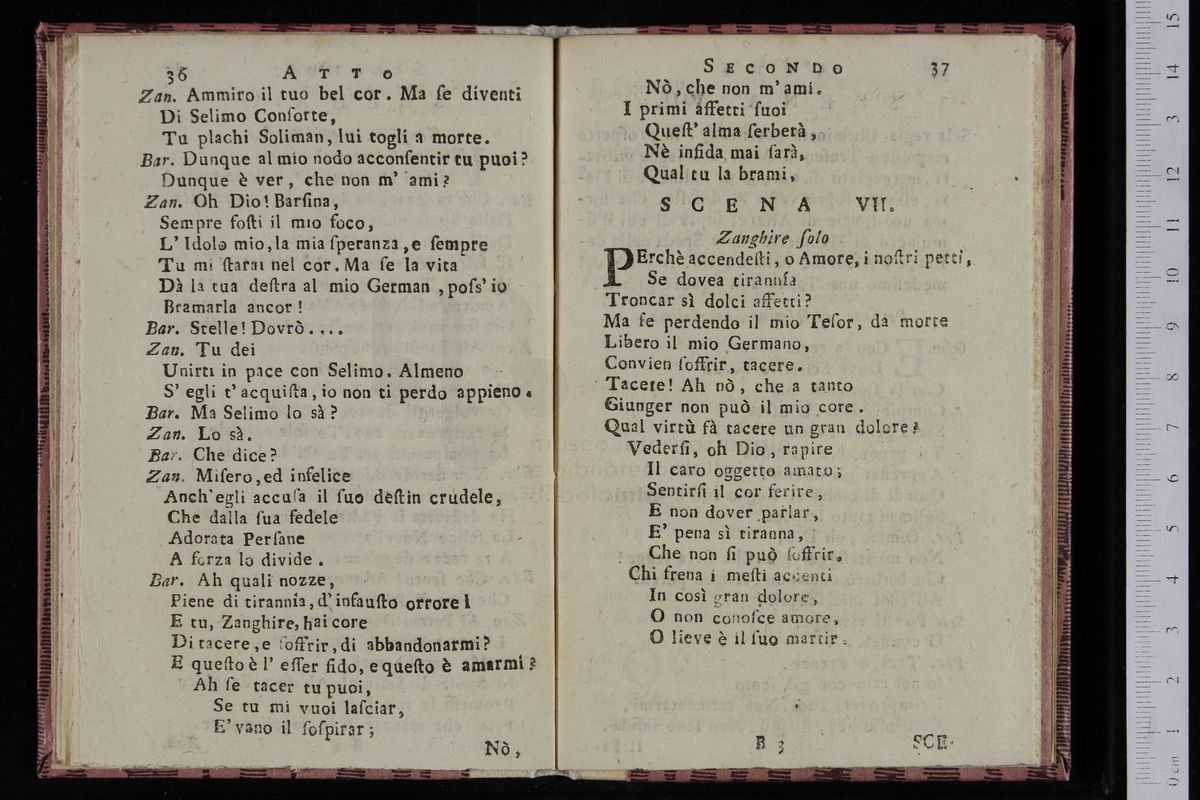 36 ATTO
Zan. Ammiro il tuo bel cor. Ma ſe diventi
Di Selimo Conſorte,
Tu plachi Soliman, lui togli a morte.
Bar. Dunque al mio nodo acconſentir tu puoi?
Dunque è ver, che non m' ami?
Zan. Oh Dio! Barſina,
Sempre foſti il mio foco,
L' Idolo mio, la mia ſperanza, e ſempre
Tu mi ſtarai nel cor. Ma ſe la vita
Dà la tua deſtra al mio German, poſs' io
Bramarla ancor!
Bar. Stelle! Dovrò....
Zan. Tu dei
Unirti in pace con Selimo. Almeno
S' egli t' acquiſta, io non ti perdo appieno.
Bar. Ma Selimo lo sà?
Zan. Lo sà.
Bar. Che dice?
Zan. Miſero, ed infelice
Anch' egli accuſa il ſuo deſtin crudele,
Che dalla ſua fedele
Adorata Perſane
A forza lo divide.
Bar. Ah quali nozze,
Piene di tirannía, d' infauſto orrore!
E tu, Zanghire, hai core
Di tacere, e ſoffrir, di abbandonarmi?
E queſto è l' eſſer fido, e queſto è amarmi?
Ah ſe tacer tu puoi,
Se tu mi vuoi laſciar,
E' vano il ſoſpirar;
Nò,
SECONDO 37
Nò, che non m' ami.
I primi affetti ſuoi
Queſt' alma ſerberà,
Nè infida mai ſarà,
Qual tu la brami,
SCENA VII.
Zanghire ſolo
PErchè accendeſti, o Amore, i noſtri petti,
Se dovea tirannía
Troncar sì dolci affetti?
Ma ſe perdendo il mio Teſor, da morte
Libero il mio Germano,
Convien ſoffrir, tacere.
Tacere! Ah nò, che a tanto
Giunger non può il mio core.
Qual virtù fà tacere un gran dolore?
Vederſi, oh Dio, rapire
Il caro oggetto amato;
Sentirſi il cor ferire,
E non dover parlar,
E' pena sì tiranna,
Che non ſi può ſoffrir.
Chi frena i meſti accenti
In così gran dolore,
O non conoſce amore,
O lieve è il ſuo martir.
B 3 SCE-
0 cm 1 2 3 4 5 6 7 8 9 10 11 12 13 14 15